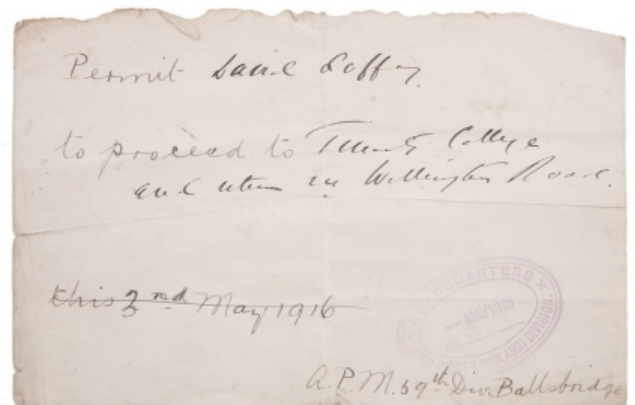 Permit David Coffey
to proceed to Trinity College
and return via Wellington Road.
this 2nd May 1916
HEADQUARTERS
MAY 1916
MIDLAND DIVISION
A.P.M. 59th Div. Ballsbridge